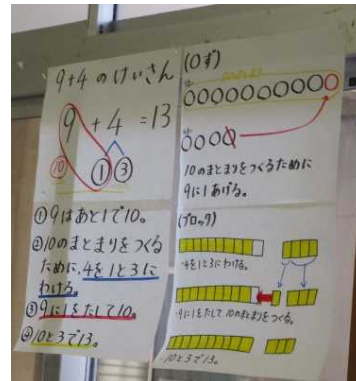 9+4 のけいさん
9 + 4 = 13
10 1 3
①9はあと1で10。
②10のまとまりをつくる
ために、4を1と3に
わける。
③9に1をたして10。
④10と3で13。
(○ず)
10のまとまりをつくるために
9に1あげる。
(ブロック)
・4を1と3にわける。
・9に1をたして10のまとまりをつくる。
・10と3で13。